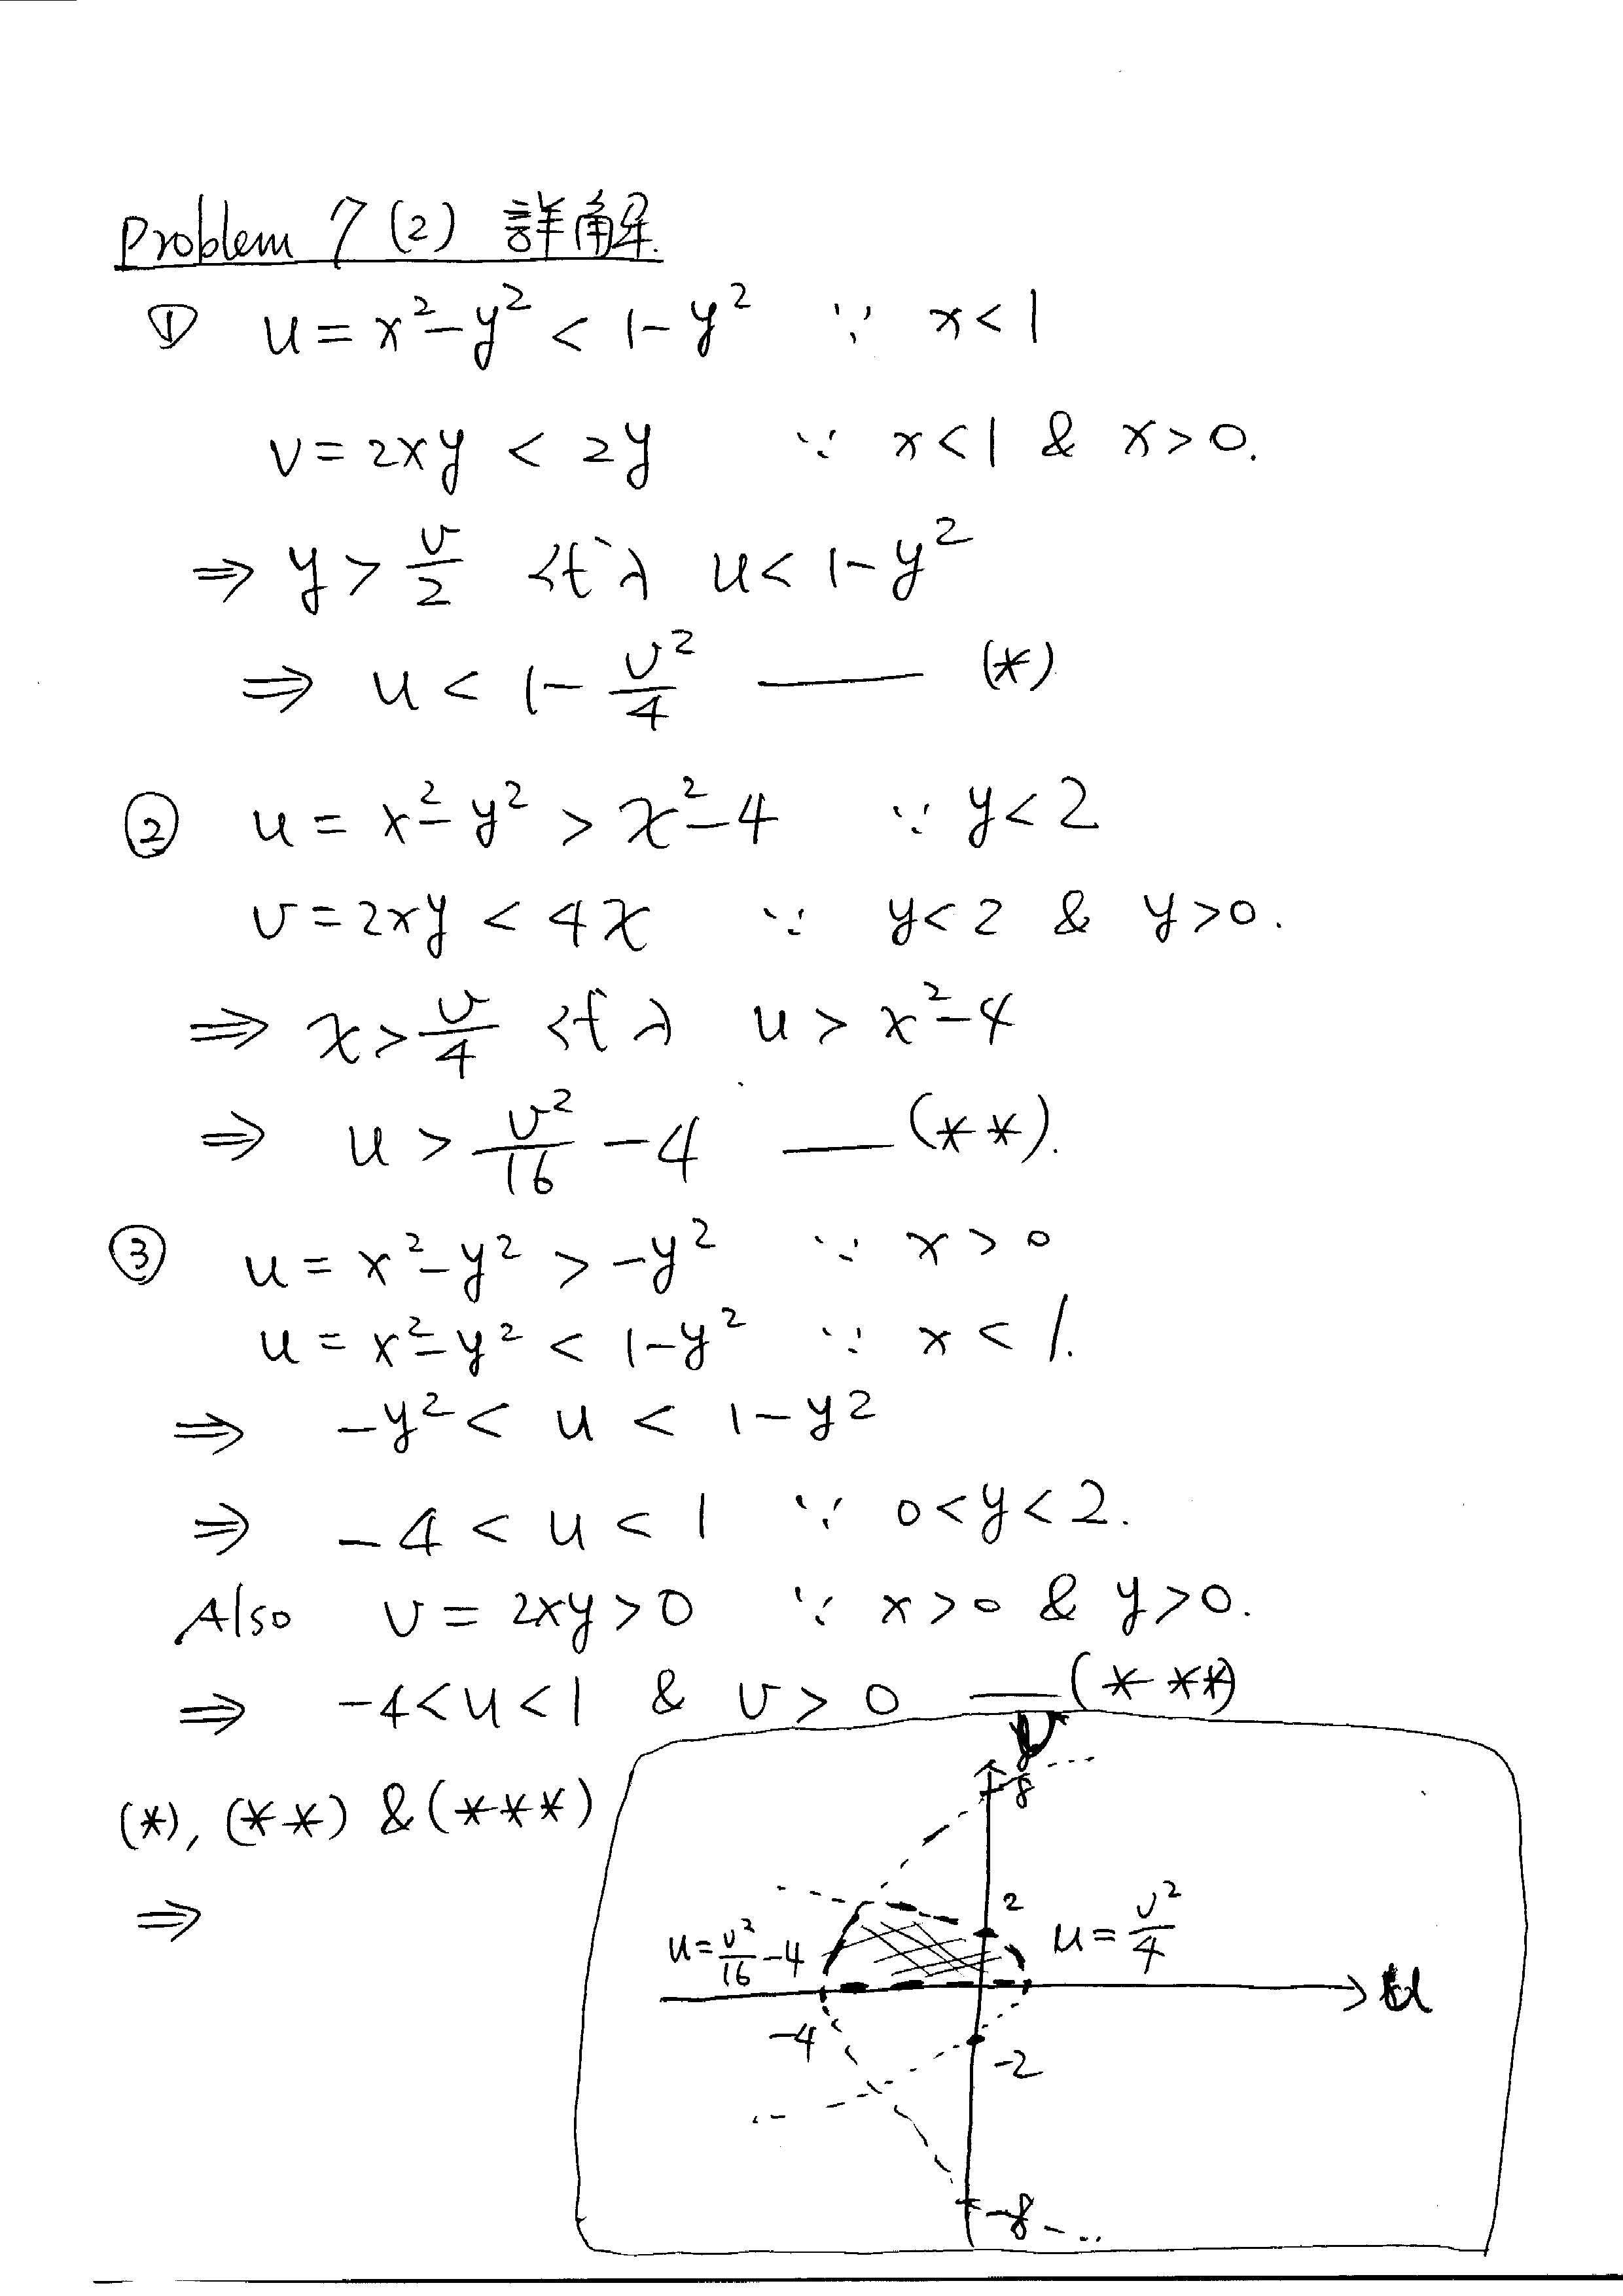 Problem 7 (2) 詳解.
① u = x² - y² < 1 - y² ∵ x < 1
v = 2xy < 2y ∵ x < 1 & x > 0.
⇒ y > v/2 代入 u < 1 - y²
⇒ u < 1 - v²/4 —— (*)
② u = x² - y² > x² - 4 ∵ y < 2
v = 2xy < 4x ∵ y < 2 & y > 0.
⇒ x > v/4 代入 u > x² - 4
⇒ u > v²/16 - 4 —— (**).
③ u = x² - y² > -y² ∵ x > 0
u = x² - y² < 1 - y² ∵ x < 1.
⇒ -y² < u < 1 - y²
⇒ -4 < u < 1 ∵ 0 < y < 2.
Also v = 2xy > 0 ∵ x > 0 & y > 0.
⇒ -4 < u < 1 & v > 0 —— (***)
(*), (**) & (***)
⇒
v
8
2
u = v²/16 - 4
u = v²/4
u
-4
-2
-8